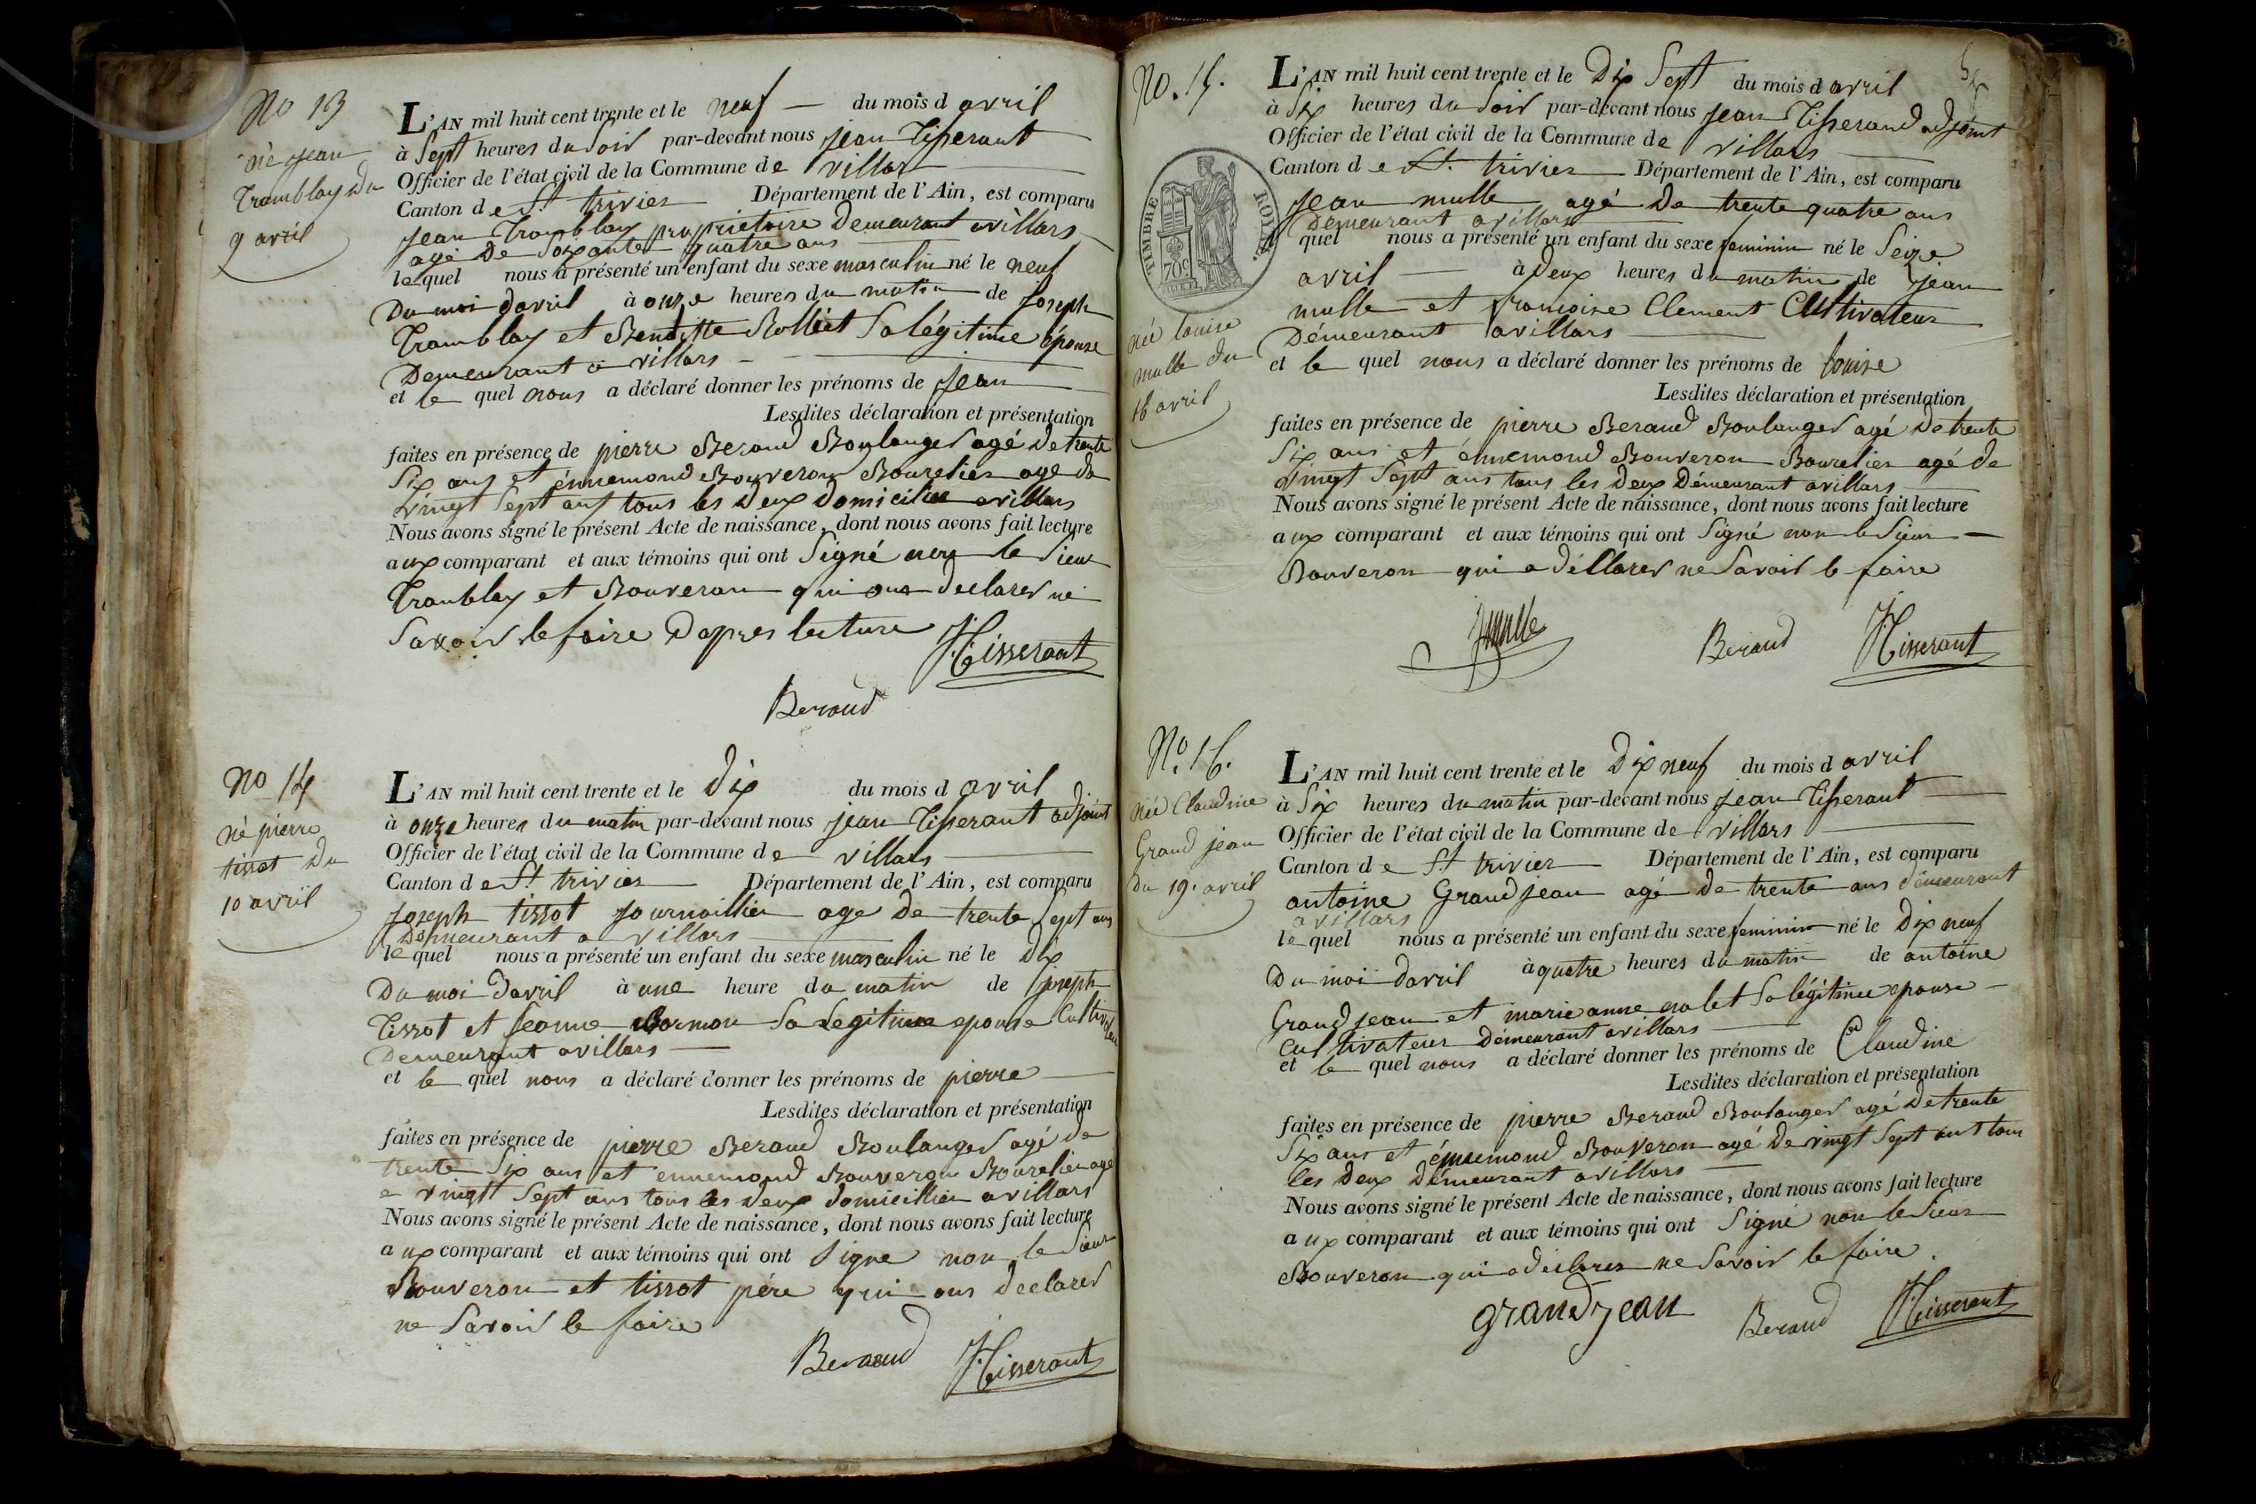 No 13
né Jean
Tramblay du
9 avril
L'AN mil huit cent trente et le neuf du mois d avril
à Sept heures du Soir par-devant nous jean Tisserant
Officier de l'état civil de la Commune de villars
Canton de St trivier Département de l'Ain, est comparu
Jean Tramblay propriétaire Demeurant avillars
agé De Soixante quatre ans
lequel nous a présenté un enfant du sexe masculin né le neuf
Du moi davril à onze heures du matin de Joseph
Tramblay et Benoitte Rolliet Sa légitime épouse
Demeurant a villars
et le quel nous a déclaré donner les prénoms de Jean
Lesdites déclaration et présentation
faites en présence de pierre Beraud Boulanger agé de trente
Six ans et énnemond Bouveron Bourelier age de
vingt Sept ans tous les deux domicilies avillars
Nous avons signé le présent Acte de naissance, dont nous avons fait lecture
aux comparant et aux témoins qui ont Signé non le Sieur
Tramblay et Bouveron qui ons declarer ne
Savoir le faire Dapres lecture JTisserant
Beraud
No 14
né pierre
tissot Du
10 avril
L'AN mil huit cent trente et le Dix du mois d avril
à onze heures du matin par-devant nous jean Tisserant adjoint
Officier de l'état civil de la Commune de villars
Canton de St trivier Département de l'Ain, est comparu
Joseph tissot Journaillier age de trente Sept ans
Demeurant a villars
lequel nous a présenté un enfant du sexe masculin né le Dix
Du moi Davril à une heure du matin de Joseph
Tissot et Jeanne Bormon Sa Legitime epouse Cultivateur
Demeurant avillars
et le quel nous a déclaré donner les prénoms de pierre
Lesdites déclaration et présentation
faites en présence de pierre Beraud Boulanger agé de
trente Six ans et ennemond Bouveron Bourelier age
e vingt Sept ans tous les deux domicillier avillars
Nous avons signé le présent Acte de naissance, dont nous avons fait lecture
aux comparant et aux témoins qui ont Signe non le Sieur
Bouveron et tissot pére qui ons declarer
ne Savoir le faire
Beraud JTisserant
No. 15.
TIMBRE ROYAL
70c
née louise
mulle du
16 avril
L'AN mil huit cent trente et le Dix Sept du mois d avril
à Six heures du Soir par-devant nous Jean Tisserand adjoint
Officier de l'état civil de la Commune de villars
Canton de St. trivier Département de l'Ain, est comparu
Jean mulle agé De trente quatre ans
Demeurant avillars
quel nous a présenté un enfant du sexe feminin né le Seize
avril à Deux heures du matin de Jean
mulle et françoise Clement Cultivateur
Démeurant avillars
et le quel nous a déclaré donner les prénoms de louise
Lesdites déclaration et présentation
faites en présence de pierre Beraud Boulanger agé De trente
Six ans et énnemond Bouveron Bourelier agé de
vingt Sept ans tous les deux Démeurant avillars
Nous avons signé le présent Acte de naissance, dont nous avons fait lecture
aux comparant et aux témoins qui ont Signé non le Sieur
Bouveron qui a déllarer ne Savoir le faire
Jmulle Beraud JTisserant
No. 16.
née Claudine
Grand jean
Du 19. avril
L'AN mil huit cent trente et le Dix neuf du mois d avril
à Six heures du matin par-devant nous Jean Tisserant
Officier de l'état civil de la Commune de villars
Canton de St trivier Département de l'Ain, est comparu
antoine Grandjean agé de trente ans démeurant
avillars
lequel nous a présenté un enfant du sexe feminin né le Dix neuf
Du moi davril à quatre heures du matin de antoine
Grand jean et marie anne nalet Sa légitime epouse
cultivateur démeurant avillars
et le quel nous a déclaré donner les prénoms de Claudine
Lesdites déclaration et présentation
faites en présence de pierre Beraud Boulanger agé De trente
Six ans et énnemond Bouveron agé De vingt Sept ans tous
les deux démeurant avillars
Nous avons signé le présent Acte de naissance, dont nous avons fait lecture
aux comparant et aux témoins qui ont Signé non le Sieur
Bouveron qui a déclarer ne Savoir le faire.
grandjean Beraud JTisserant